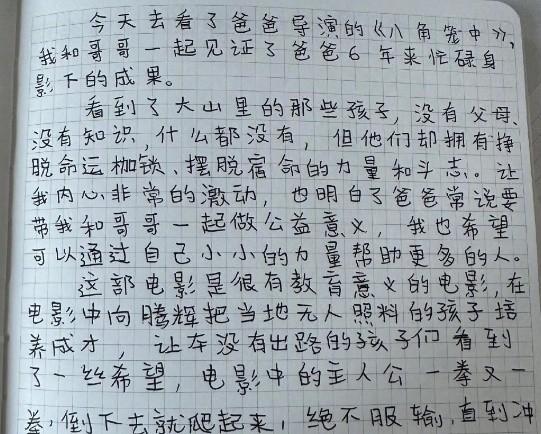 今天去看了爸爸导演的《八角笼中》，
我和哥哥一起见证了爸爸6年来忙碌身
影下的成果。
看到了大山里的那些孩子，没有父母、
没有知识，什么都没有，但他们却拥有挣
脱命运枷锁、摆脱宿命的力量和斗志。让
我内心非常的激动，也明白了爸爸常说要
带我和哥哥一起做公益意义，我也希望
可以通过自己小小的力量帮助更多的人。
这部电影是很有教育意义的电影，在
电影中向腾辉把当地无人照料的孩子培
养成才，让本没有出路的孩子们看到
了一丝希望，电影中的主人公一拳又一
拳，倒下去就爬起来，绝不服输，直到冲